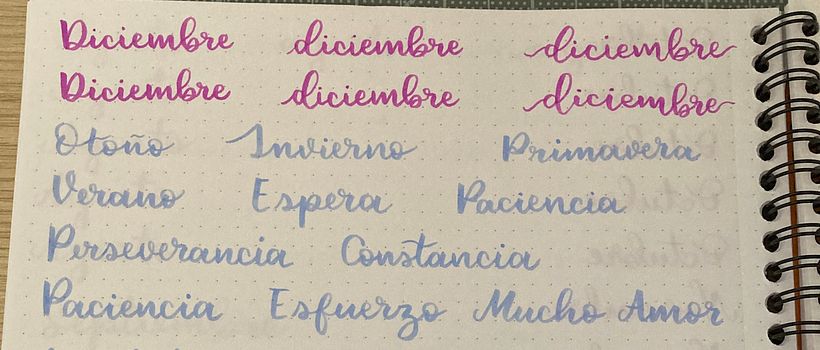 Diciembre diciembre diciembre
Diciembre diciembre diciembre
Otoño Invierno Primavera
Verano Espera Paciencia
Perseverancia Constancia
Paciencia Esfuerzo Mucho Amor